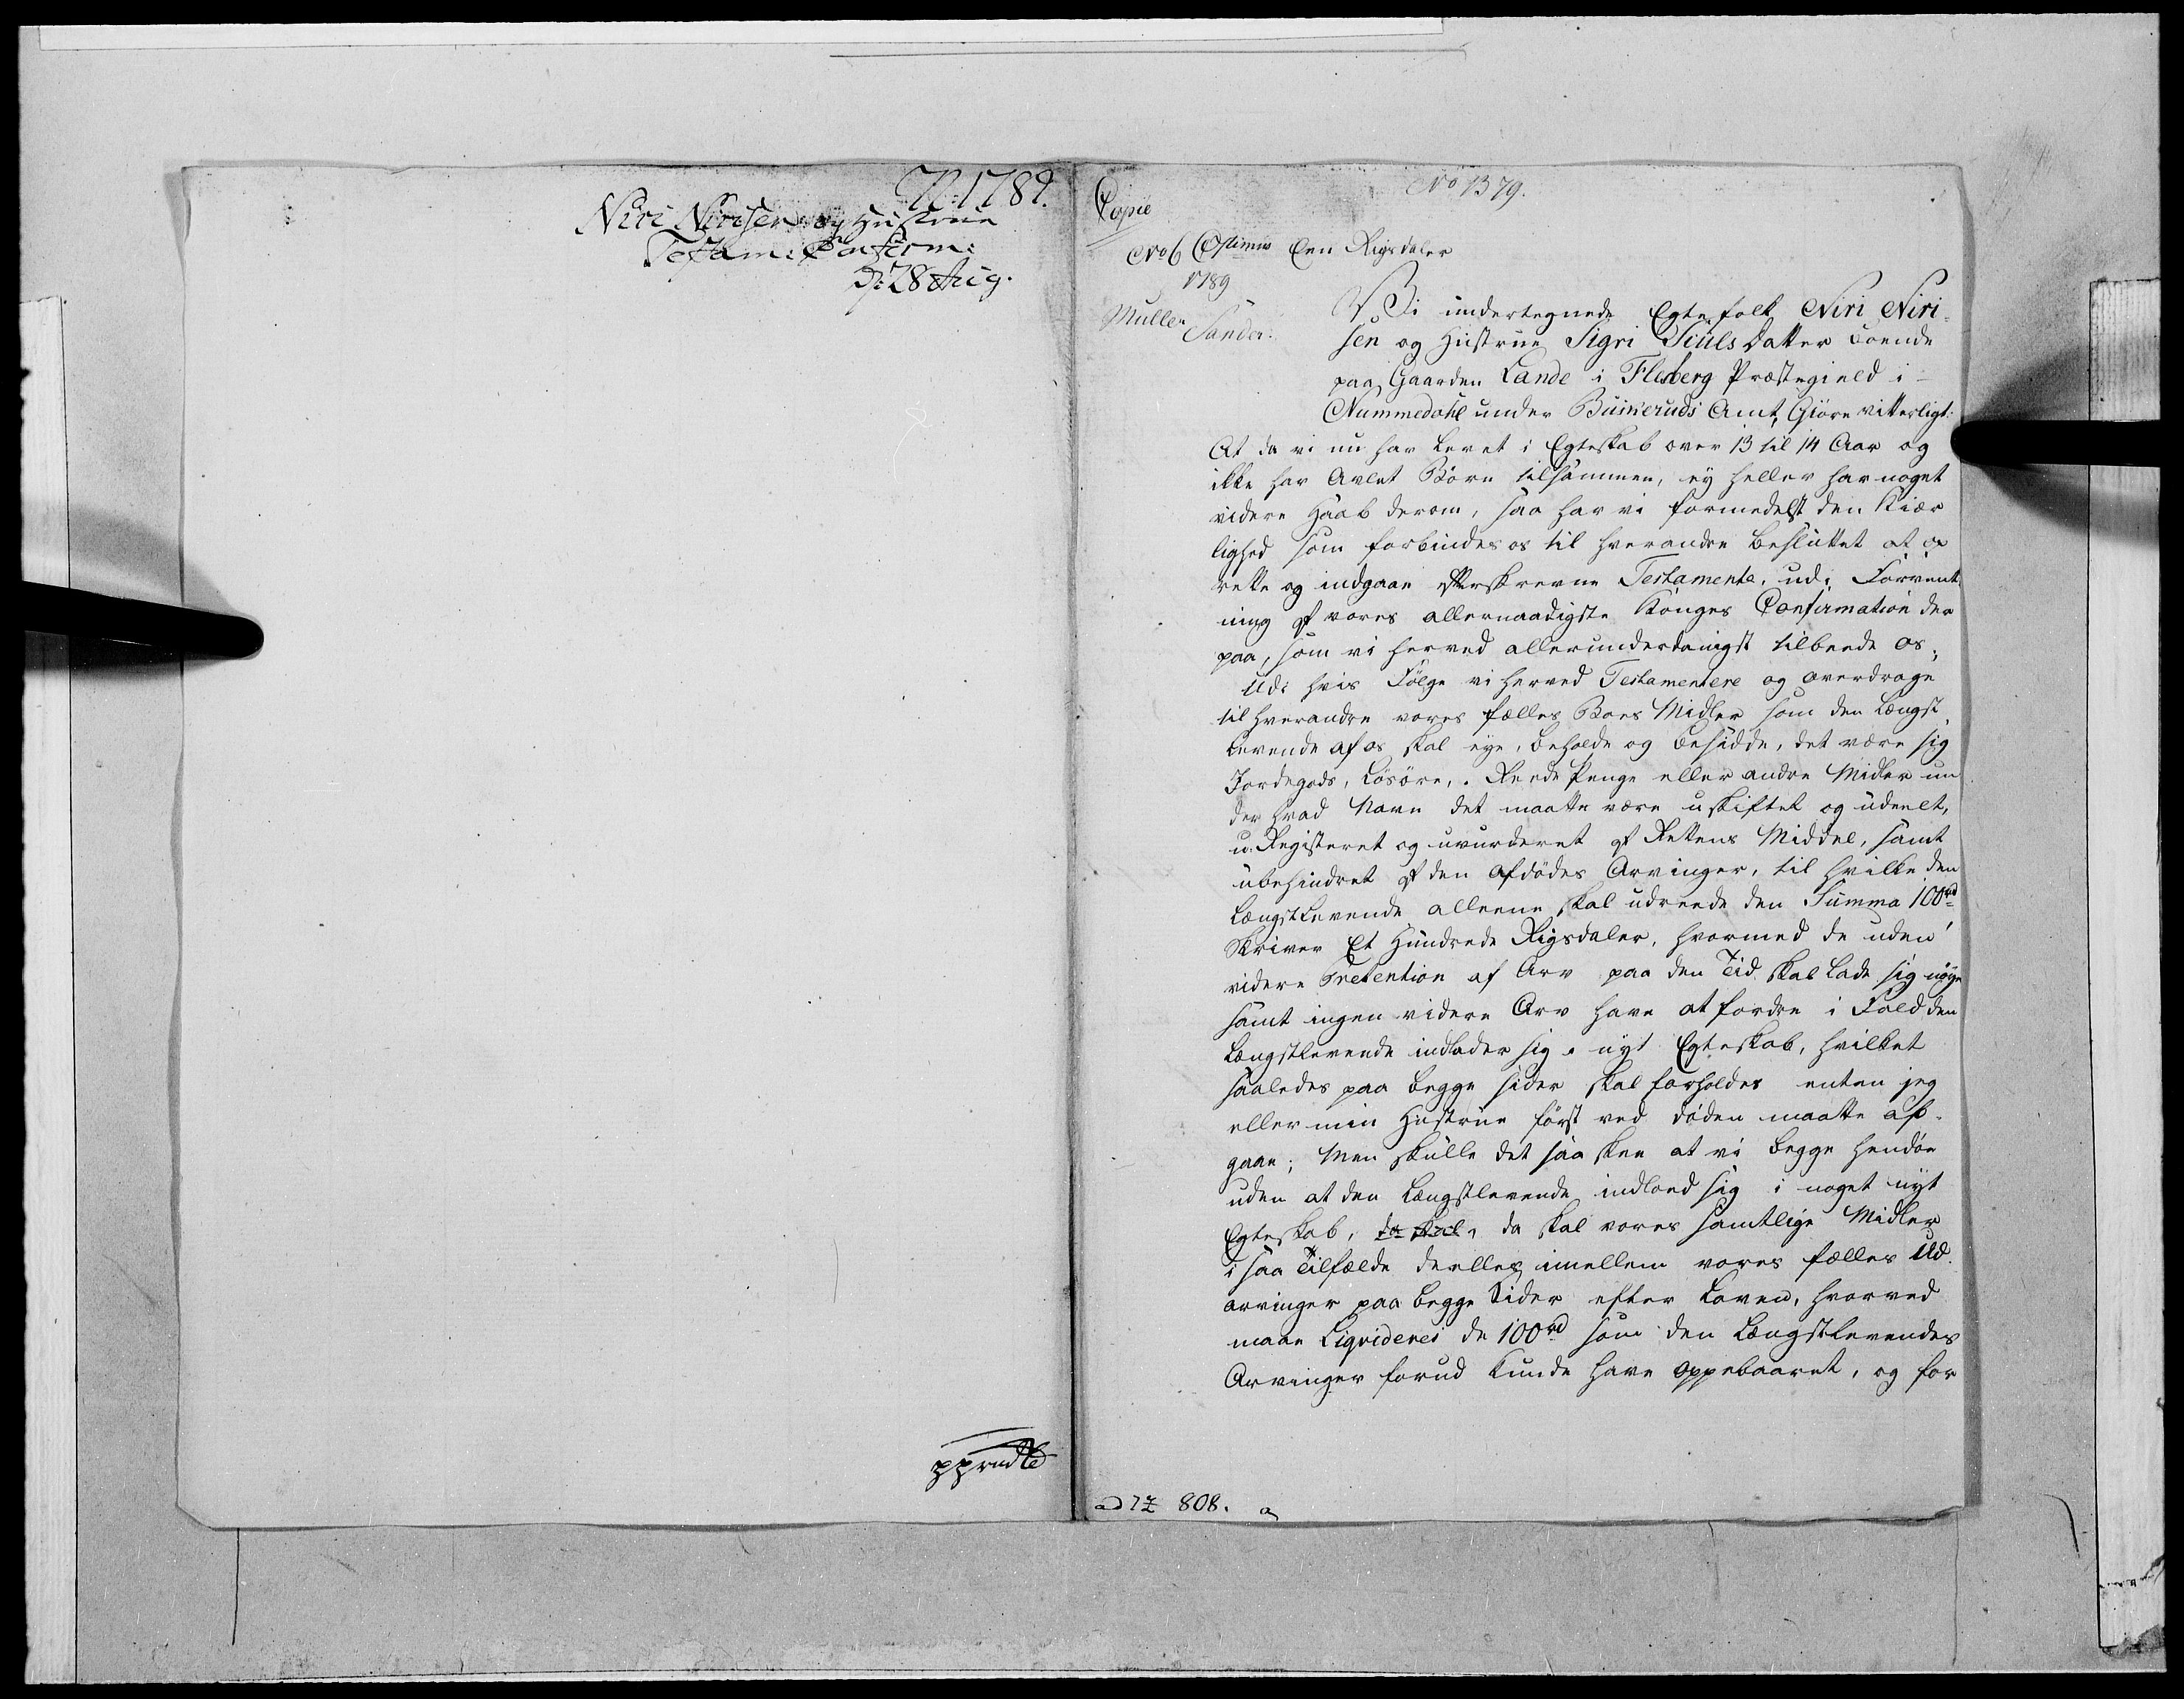 N: 1789.
Niri Nirisen og Hustrue
Testam: Confirm:
D: 28 Aug.
No 1379.
Copie
No 6 Optimus Een Rigsdaler
1789
Müller Sander.
Vi undertegnede Egtefolk Niri Niri-
sen og Hustrue Sigri Siuls Datter boende
paa Gaarden Lande i Flesberg Præstegield i
Nummedahl under Buskeruds Amt, Giøre vitterligt:
At da vi nu har levet i Egteskab over 13 til 14 Aar og
ikke har Avlet Børn tilsammen, ey heller har noget
videre Haab derom, saa har vi formedelst den Kiær
lighed som forbindes os til hverandre besluttet at op
rette og indgaae efterskrevne Testamente, udi Forvent
ning af vores allernaadigste Konges Confirmation der
paa, som vi herved allerunderdanigst udbeede os,
Udi hvis Følge vi herved Testamentere og overdrage
til hverandre vores fælles Boes Midler som den Længst
levende af os skal eye, beholde og besidde, det være sig
Jordegods, Løsøre, Rede Penge eller andre Midler un
der hvad Navn det maatte være uskiftet og udeelt,
u-Registeret og uvurderet af Rettens Middel, samt
ubehindret af den Afdødes Arvinger, til hvilke den
Længstlevende alleene skal udreede den Summa 100 rd
Skriver Et Hundrede Rigsdaler, hvormed de uden
videre Pretention af Arv paa den Tid skal lade sig nøye
samt ingen videre Arv have at fordre i Fald den
Længstlevende indlader sig i nyt Egteskab, hvilket
saaledes paa begge sider skal forholdes enten jeg
eller min Hustrue først ved døden maatte af-
gaae; Men skulle det saa skee at vi begge hendøe
uden at den Længstlevende indlod sig i noget nyt
Egteskab, da skal, da skal vores samtlige Midler
i saa Tilfælde deelles imellem vores fælles Ud-
arvinger paa begge Sider efter Loven, hvorved
maae Liqvideres de 100 rd som den Længstlevendes
Arvinger forud kunde have oppebaaret, og for
ad 808.